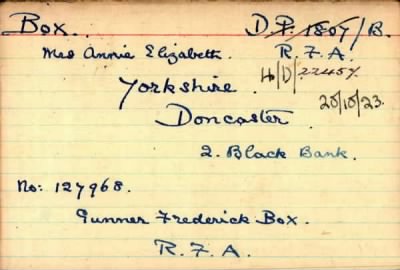 Box. D.P. 1807/B.
Mrs Annie Elizabeth. R.F.A.
4/D/22457
Yorkshire.
20/10/23.
Doncaster.
2. Black Bank.
No: 127968.
Gunner Frederick Box.
R.F.A.